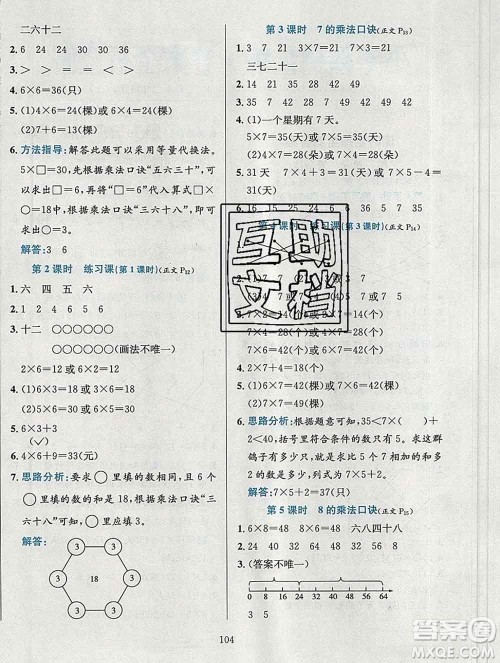 二六十二
2. 18 24 36
3. > = = < = >
4. 6×6=36(只)
5. (1)4×6=24(棵)
(2)7+6=13(棵)
6. 方法指导:解答此题可以采用等量代换法。
5×□=30,先根据乘法口诀“五六三十”可
以求出□=6,再把“□=6”代入算式○×□
=18,然后根据乘法口诀“三六十八”,即可
求出○=3。
解答:3 6
第 2 课时 练习课(第 1 课时)(正文 P12)
1. 六 四 五 六
2. 1 2 4 6 5 6
3. 十二 ○○○○○○
○○○○○○(画法不唯一)
2×6=12 6×2=12
4. (1)6×3=18 3×6=18
(2)5×6=30 6×5=30
5. 6×3+2
(✓)
6. 4×6+9=33(元)
7. 思路分析:要求○里填的数相同,且 6 个○
里填的数的和是 18,根据乘法口诀“三
六十八”可知,○里应填 3。
解答:
3 3
3 18 3
3 3
第 3 课时 7 的乘法口诀(正文 P13)
1. 3 7 21 3×7=21 7×3=21
三七二十一
2. 14 21 28 35 42 49
3. 35 21 49
4. (1)一个星期有 7 天。
5×7=35(朵)或 7×5=35(朵)
(2)4×7=28(朵)或 7×4=28(朵)
5. 31 天 7×4+3=31(天)
6. 16 15 25 24 6 35 7
练习课(第 3 课时)(正文 P14)
7×6=42
7×4=28(个)或 4×7=28(个)
6×7=42(个)或 7×6=42(个)
3. 2×7+4=18(个)
4. (1)6×7=42(棵)或 7×6=42(棵)
(2)42+6=48(棵)
6. 思路分析:根据题意可知,35<7×( )+
2<40,圈出符合条件的数只有 5。求这群
鸽子有多少只,就是求比 7 个 5 多 2 的数
是多少。
解答:7×5+2=37(只)
第 5 课时 8 的乘法口诀(正文 P15)
1. 6×8=48 8×6=48 六八四十八
2. 24 40 32 48 56 64
3. (答案不唯一)
0 8 16 24 32 40 48 56 64
3 5
互助
文档
104
答案圈
MXQE.COM